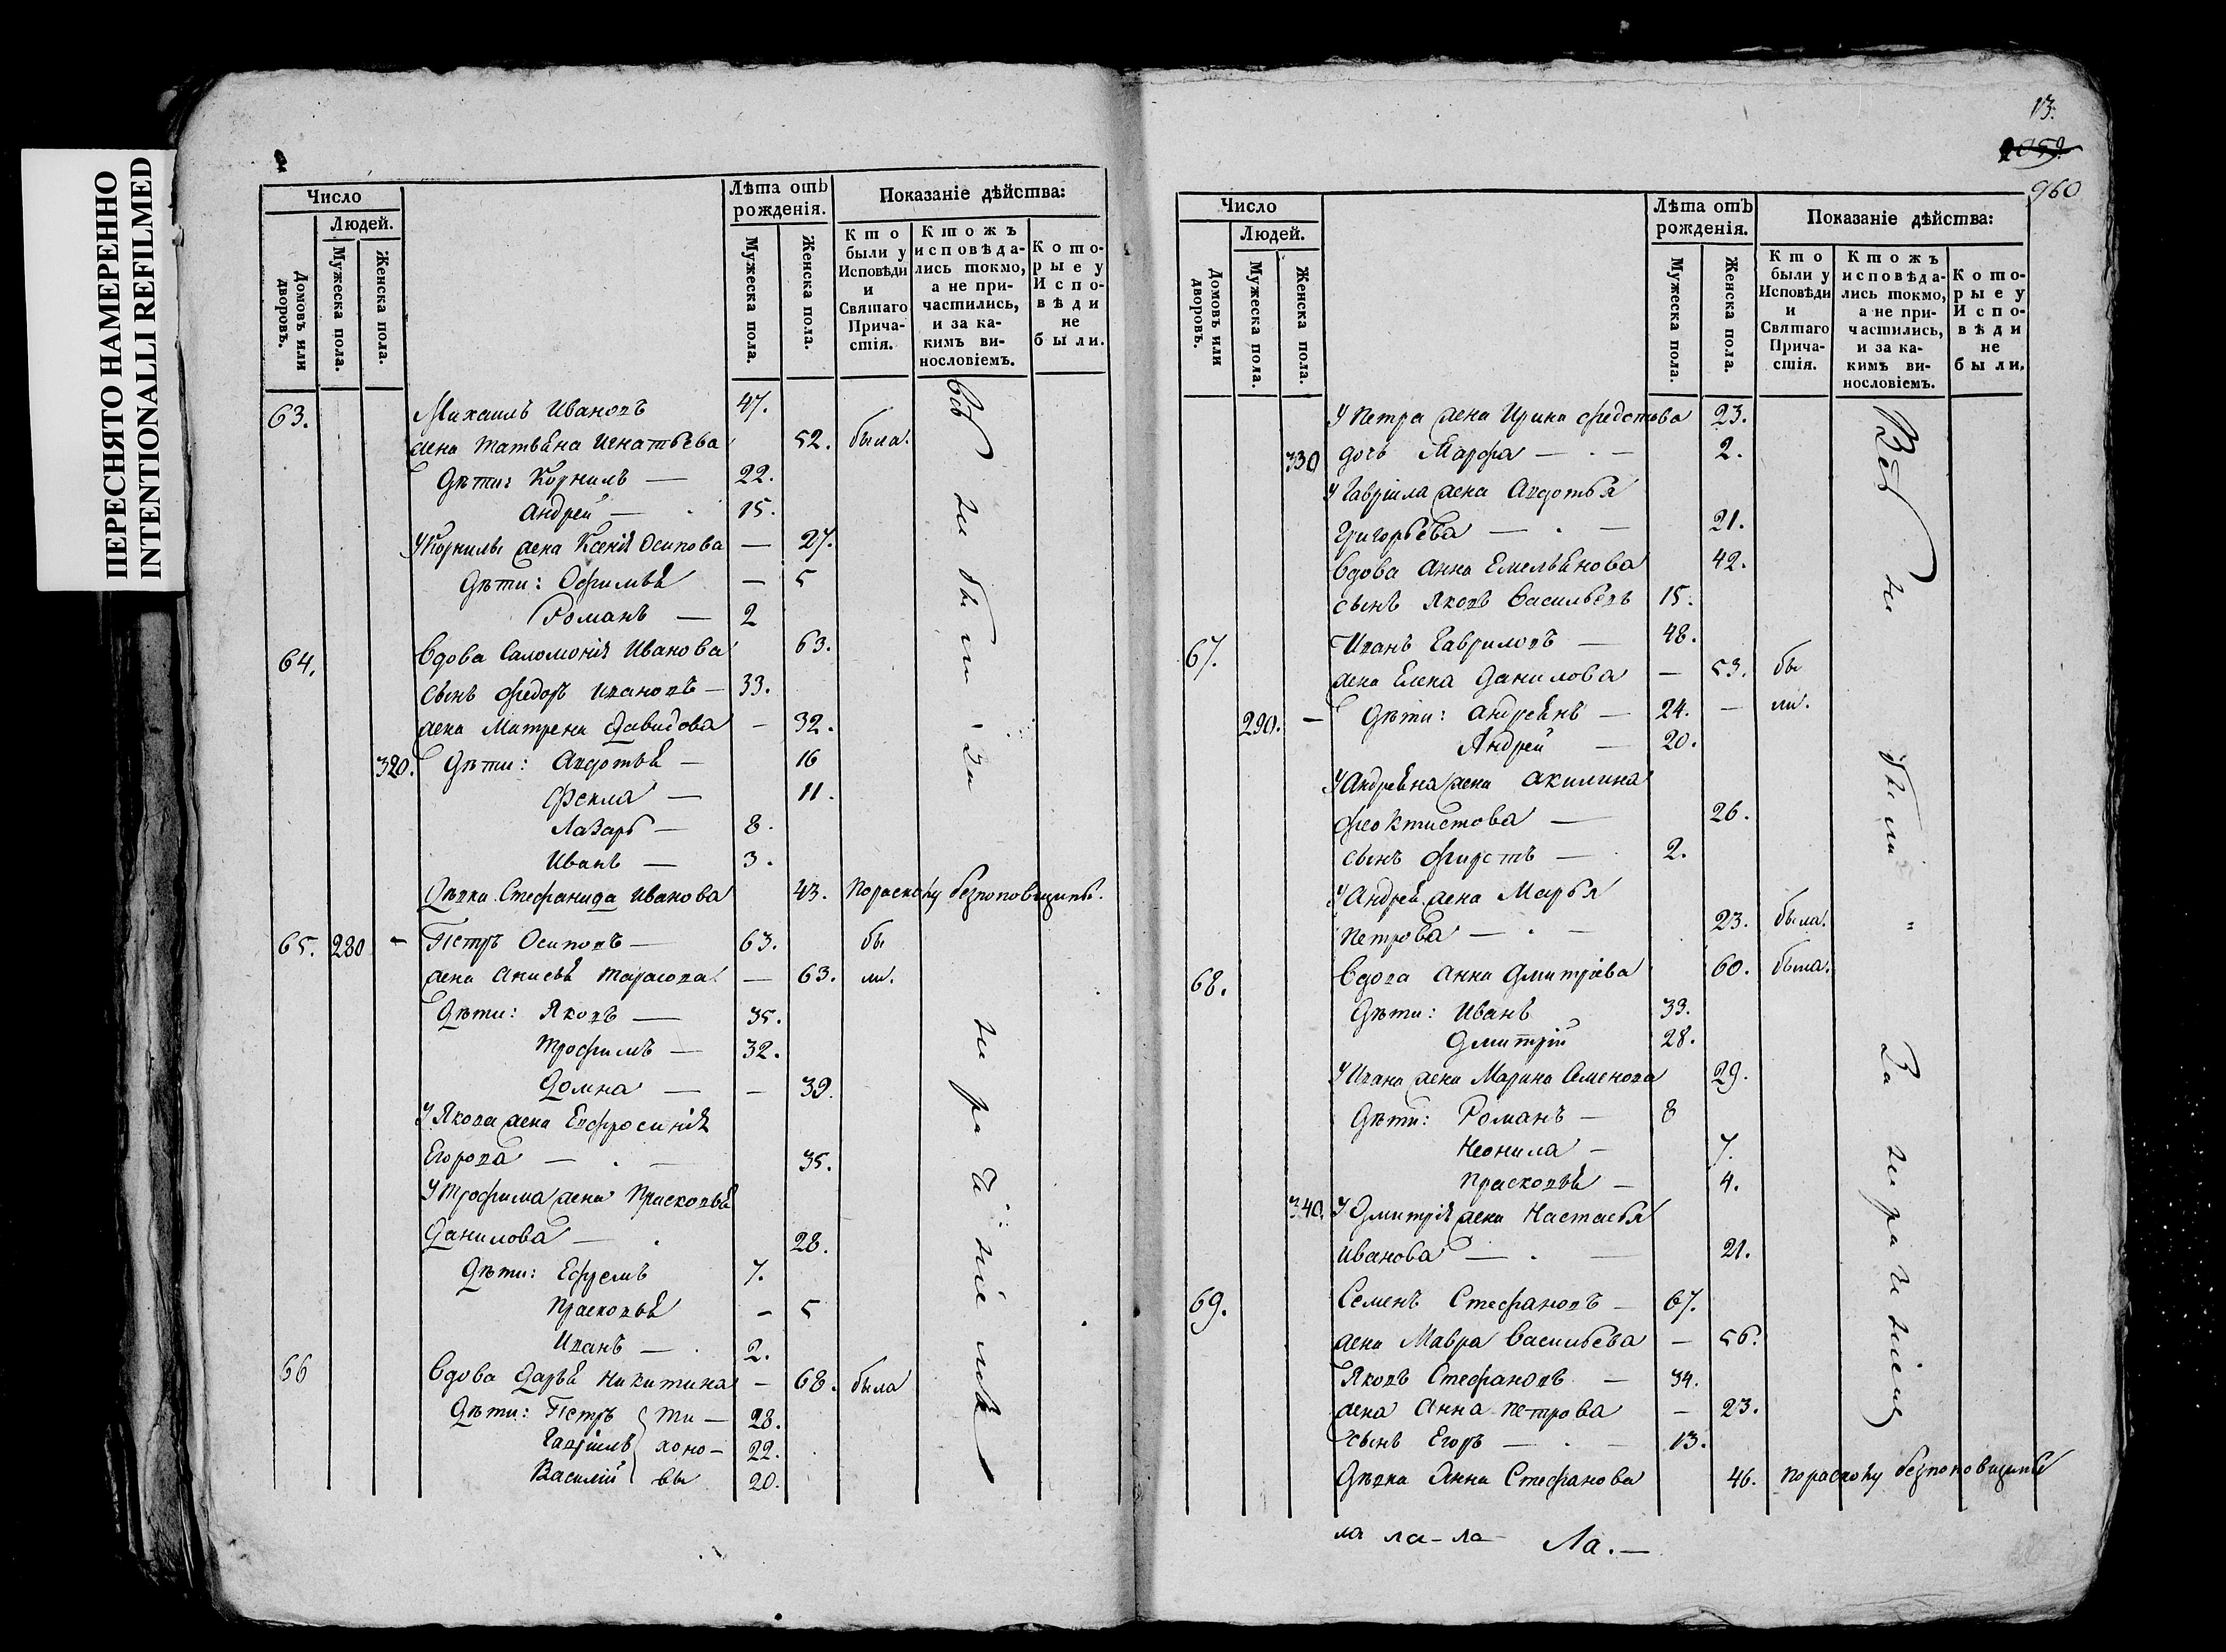 ПЕРЕСНЯТО НАМЕРЕННО
INTENTIONALLI REFILMED
Число
Людей.
Домовъ или дворовъ.
Мужеска пола.
Женска пола.
Лѣта отъ рожденія.
Мужеска пола.
Женска пола.
Показаніе дѣйства:
Кто были у Исповѣди и Святаго Прича-стія.
Ктожъ исповѣда-лись токмо, а не при-частились, и за ка-кимъ ви-нословіемъ.
Кото-рые у Испо-вѣди не были.
63. Михаилъ Ивановъ 47.
жена Татьѣна Игнатьева 52. была.
Дѣти: Корнилъ — 22.
Андрей — 15.
У Корнилы жена Ксенiѣ Осипова — 27.
Дѣти: Офимьѣ — 5
Романъ — 2
64. Вдова Саломониѣ Иванова 63.
сынъ Федоръ Ивановъ — 33.
жена Матрена Давидова — 32.
320. Дѣти: Авдотьѣ — 16
Фекла — 11.
Лазарь — 8.
Иванъ — 3.
Дѣвка Стефанида Иванова 43. По расколу безпоповщины.
65. 280 - Петръ Осиповъ — 63. бы
жена Анисьѣ Тарасова — 63. ли.
Дѣти: Яковъ — 35.
Трофимъ — 32.
Домна — — 39.
У Якова жена Евфросиниѣ
Егорова — . — 35.
У Трофима жена Прасковьѣ
Данилова — . 28.
Дѣти: Ефремъ 7.
Прасковьѣ - 5
Иванъ — . 2.
66 Вдова Дарьѣ Никитина — 68. была
Дѣти: Петръ { Ти — 28.
Гавріилъ хоно — 22.
Василій вы 20.
Всѣ не были за нерадѣніемъ
13.
960
Число
Людей.
Домовъ или дворовъ.
Мужеска пола.
Женска пола.
Лѣта отъ рожденія.
Мужеска пола.
Женска пола.
Показаніе дѣйства:
Кто были у Исповѣди и Святаго Прича-стія.
Ктожъ исповѣда-лись токмо, а не при-частились, и за ка-кимъ ви-нословіемъ.
Кото-рые у Испо-вѣди не были.
У Петра жена Ирина Федотова 23.
330 дочь Марфа — . — 2.
У Гавріила жена Авдотья
Григорьева — . — 21.
Вдова Анна Емельѣнова 42.
сынъ Яковъ Васильевъ 15.
67. Иванъ Гавриловъ — 48.
жена Елена Данилова — 53. бы
290. - Дѣти: Андреѣнъ — 24. — ли.
Андрей — 20.
У Андреѣна жена Акилина
Феоктистова — 26.
сынъ Фирстъ — 2.
У Андрея жена Марья
Петрова — . — 23. была.
68. Вдова Анна Дмитріева 60. была.
Дѣти: Иванъ 33.
Дмитрій 28.
У Ивана жена Марина Семенова 29.
Дѣти: Романъ — 8
Неонила — 7.
Прасковьѣ — 4.
340. У Дмитріѣ жена Настасья
Иванова — . — 21.
69. Семенъ Стефановъ — 67.
жена Мавра Васильева — 56.
Яковъ Стефановъ — 34.
жена Анна Петрова — 23.
сынъ Егоръ — . — 13.
Дѣвка Анна Стефанова 46. По расколу безпоповщины
Всѣ не были за нераченіемъ
ла ла-ла Ла. —